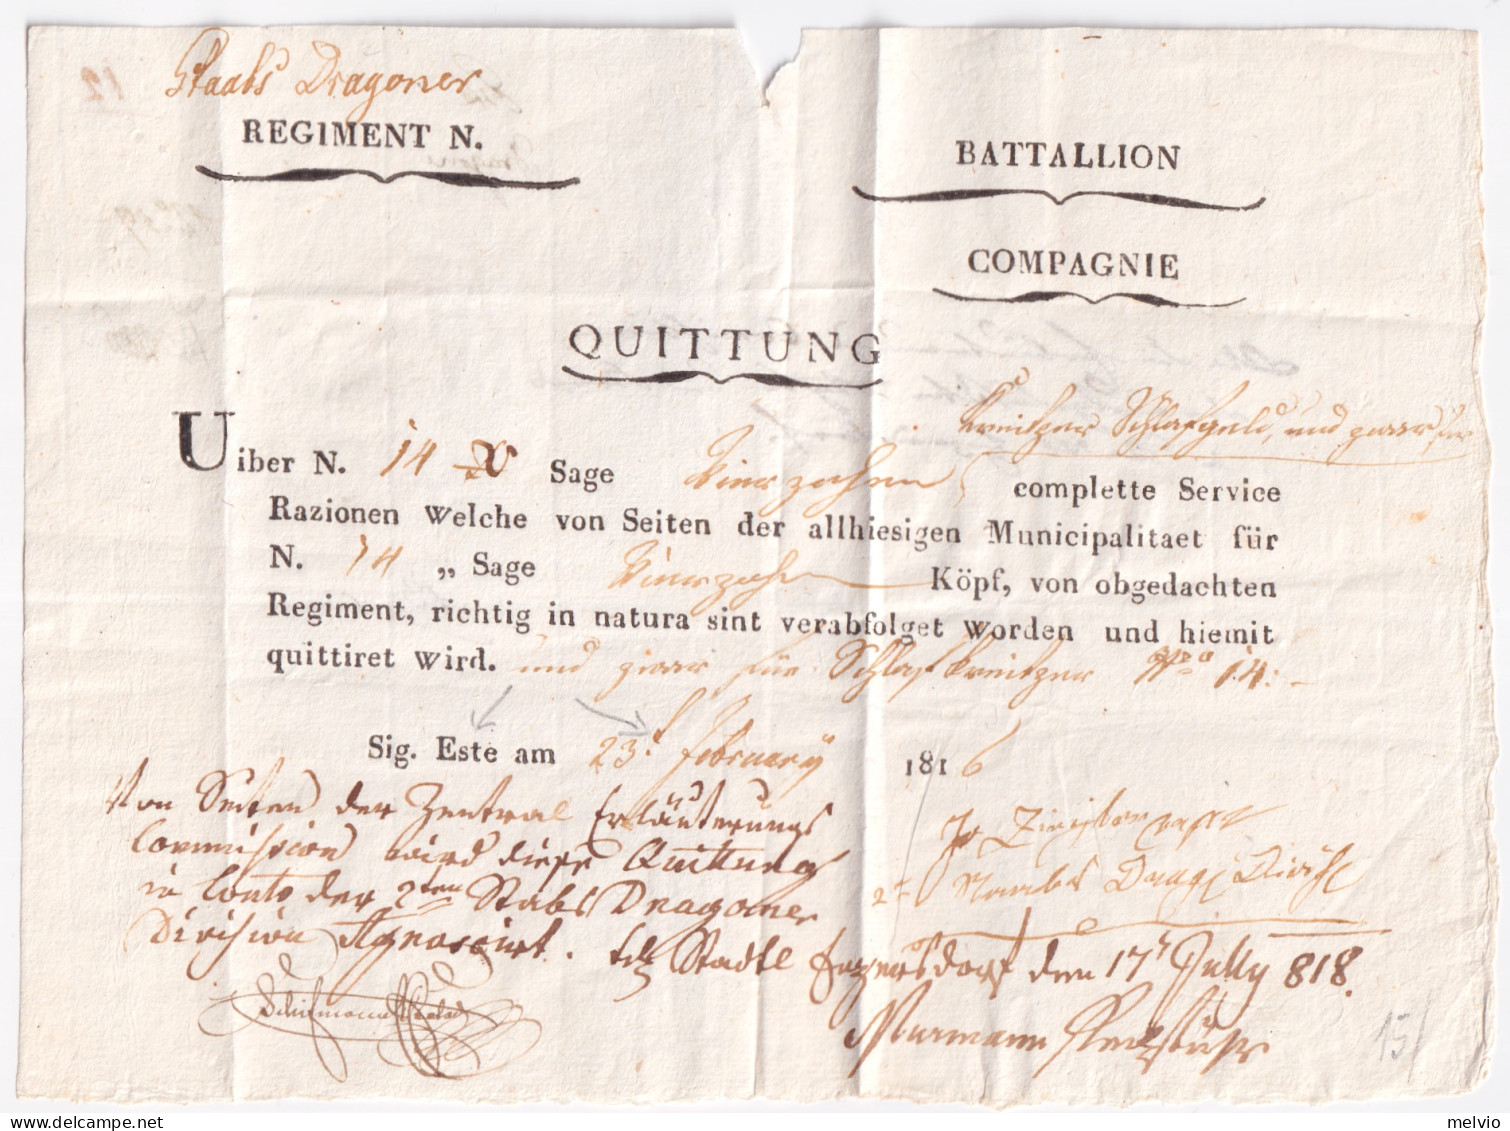 Staabs Dragoner
REGIMENT N.
BATTALLION
COMPAGNIE
QUITTUNG
Kreutzer Schlafgeld, und zwar für
Uiber N. 14 Sage Vierzehen complette Service
Razionen welche von Seiten der allhiesigen Municipalitaet für
N. 14 „ Sage Vierzehen Köpf, von obgedachten
Regiment, richtig in natura sint verabfolget worden und hiemit
quittiret wird. und zwar für Schlafkreutzer 14:
Sig. Este am 23t February 1816
Von Seiten der Zentral Erläuterungs
Commission wird diese Quittung
in Conto der 2ten Stabs Dragoner
Division Agnoscirt. Stadtl Enzersdorf den 17t July 818.
2t Staabs Drag. Divis.
15
melvio